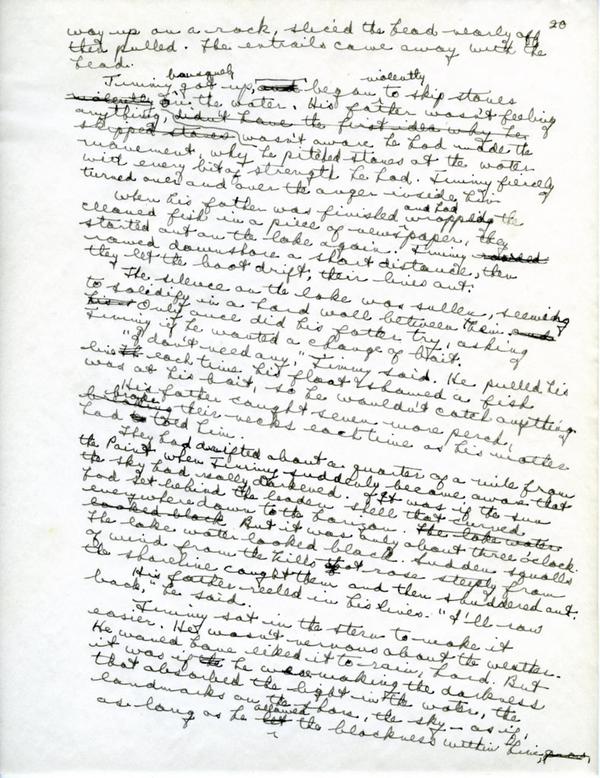 20
way up on a rock, sliced the head nearly off
then pulled. The entrails came away with the
head.
brusquely violently
Jimmy got up, and began to skip stones
violently on the water. His father wasn't feeling
anything, didn't have the first idea why he
skipped stones wasn't aware he had made the
movement, why he pitched stones at the water
with every bit of strength he had. Jimmy fiercely
turned over and over the anger inside him.
When his father was finished and had wrapped the
cleaned fish in a piece of newspaper, they
started out on the lake again. Jimmy rowed
rowed downshore a short distance, then
they let the boat drift, their lines out.
The silence on the lake was sullen, seeming
to solidify in a hard wall between them, and
his Only once did his father try, asking
Jimmy if he wanted a change of bait.
"I don't need any," Jimmy said. He pulled his
line each time his float showed a fish
was at his bait, so he wouldn't catch anything
His father caught seven more perch,
breaking their necks each time as his mother
had told him.
They had drifted about a quarter of a mile from
the Point when Jimmy suddenly became aware that
the sky had really darkened. It was if the sun
had set behind the leaden shell that curved
everywhere down to the horizon. The lake water
looked black. But it was only about three o'clock.
The lake water looked black. Sudden squalls
of wind from the hills that rose steeply from
the shoreline caught them and then shuddered out.
His father reeled in his lines. "I'll row
back," he said.
Jimmy sat in the stern to make it
easier. He wasn't nervous about the weather.
He would have liked it to rain, hard. But
it was if he were making the darkness
that absorbed the light in the water, the
landmarks on the shore, the sky – as if,
as long as he allowed the blackness within him,